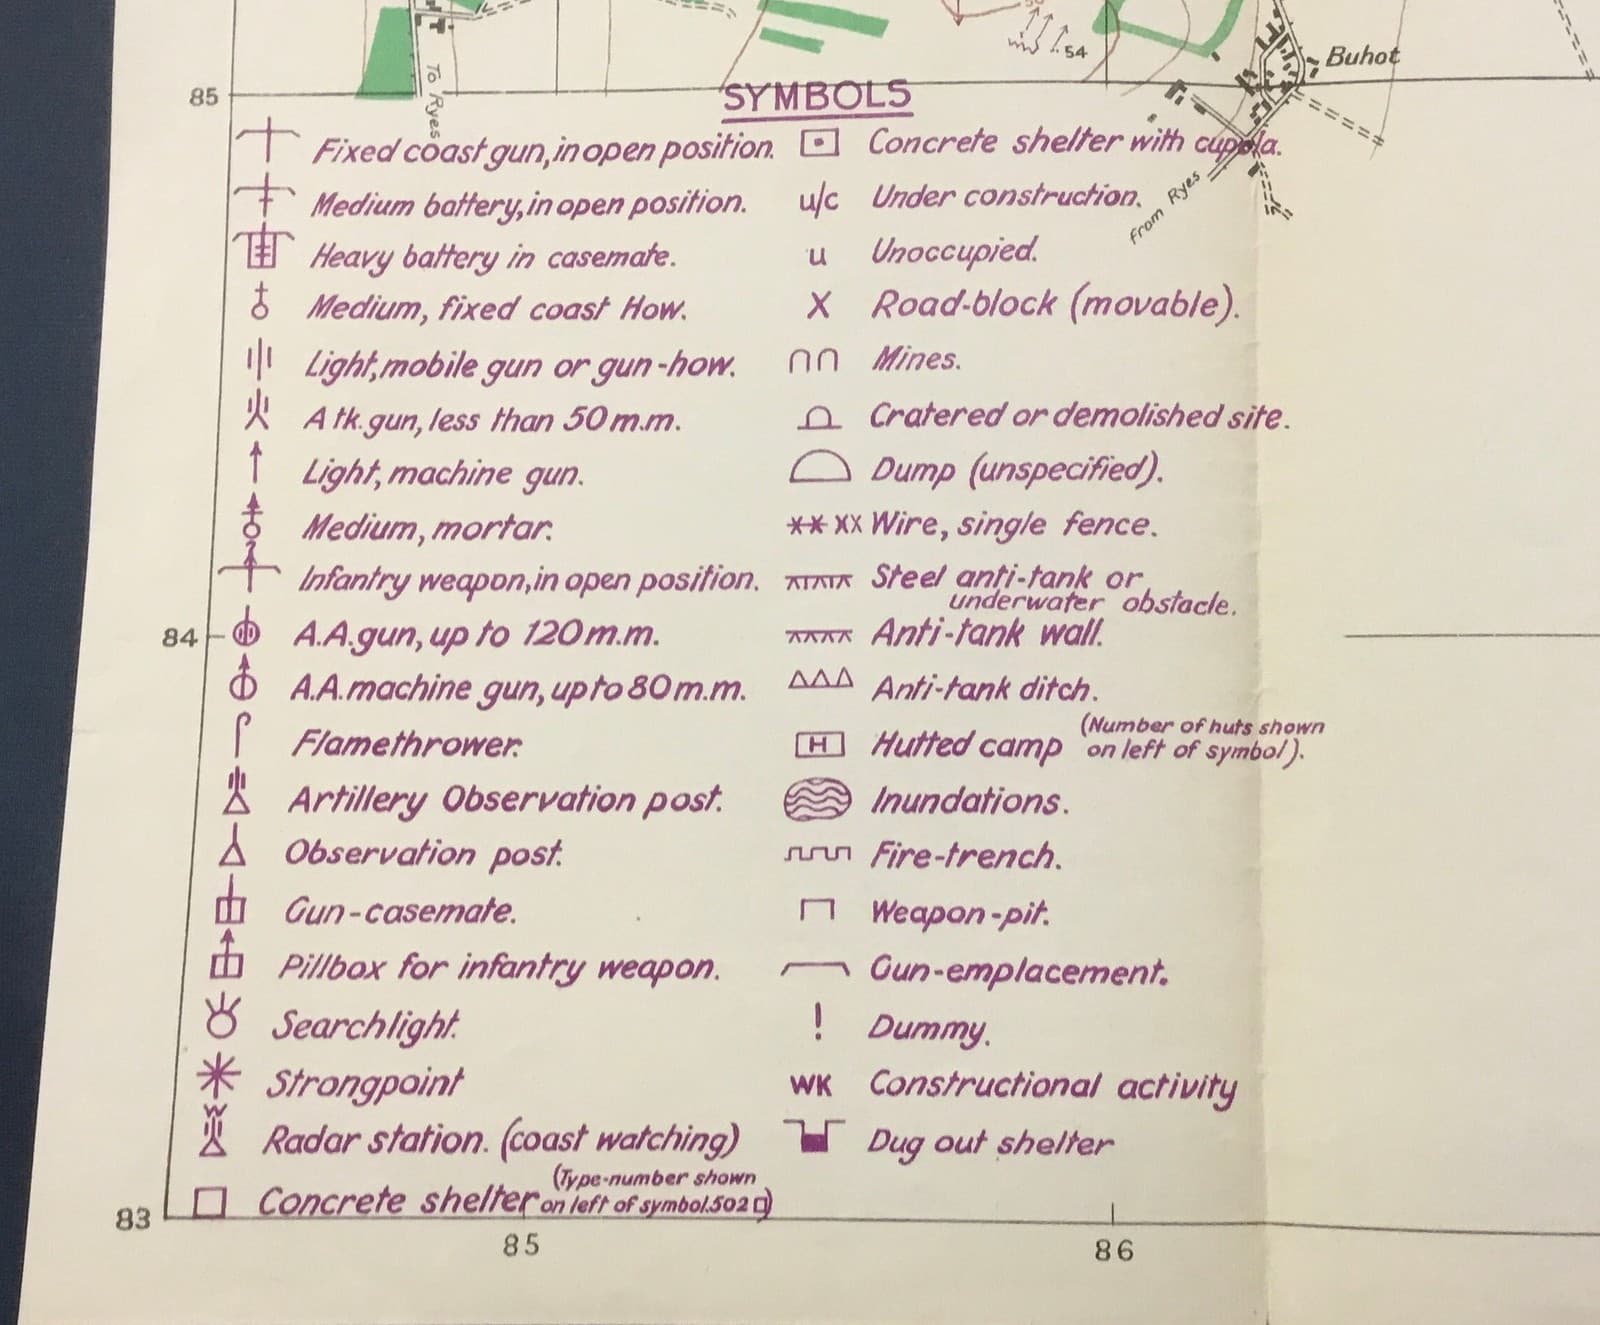 54
Buhot
To Ryes
85
SYMBOLS
Fixed coast gun, in open position.
Medium battery, in open position.
Heavy battery in casemate.
Medium, fixed coast How.
Light, mobile gun or gun-how.
A tk. gun, less than 50 m.m.
Light, machine gun.
Medium, mortar.
Infantry weapon, in open position.
84
A.A. gun, up to 120 m.m.
A.A. machine gun, up to 80 m.m.
Flamethrower.
Artillery Observation post.
Observation post.
Gun-casemate.
Pillbox for infantry weapon.
Searchlight.
Strongpoint
Radar station. (coast watching)
Concrete shelter (Type-number shown
on left of symbol. 502 □)
Concrete shelter with cupola.
from Ryes
u/c Under construction.
u Unoccupied.
X Road-block (movable).
Mines.
Cratered or demolished site.
Dump (unspecified).
XX Wire, single fence.
Steel anti-tank or
underwater obstacle.
Anti-tank wall.
Anti-tank ditch.
H Hutted camp (Number of huts shown
on left of symbol).
Inundations.
Fire-trench.
Weapon-pit.
Gun-emplacement.
! Dummy.
WK Constructional activity
Dug out shelter
83
85
86